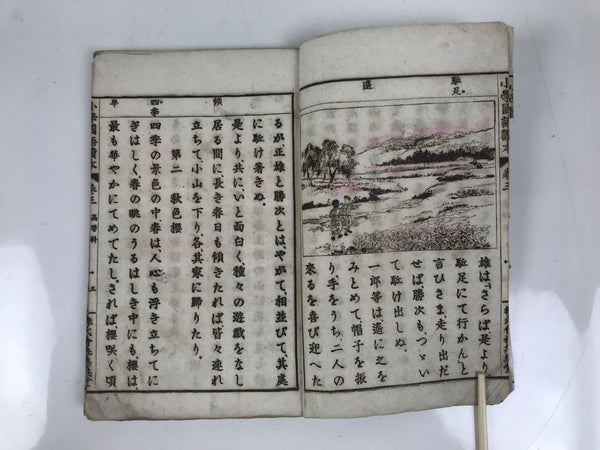 駈足。
遙
雄は、「さらば是より
駈足にて行かん」と
言ひさま、走り出だ
せば、勝次も、つゞい
て駈け出しぬ。
一郎等は遙に之を
みとめて、帽子を振
り手をうち、二人の
來るを喜び迎へた
小學國語讀本
卷三
るが、正雄と勝次とは、やがて、相並びて、其處
に駈け着きぬ。
是より共に、いと面白く、種々の遊戲をなし
傾
居る間に、長き春日も傾きたれば、皆々連れ
立ちて、小山を下り、各其家に歸りたり。
第二 秋色櫻
四季
四季の景色の中、春は、人心も浮き立ちてに
ぎはしく、春の眺のうるはしき中にも、櫻は、
最も華やかにてめでたし。されば、櫻咲く頃
小學國語讀本
卷三
高等科